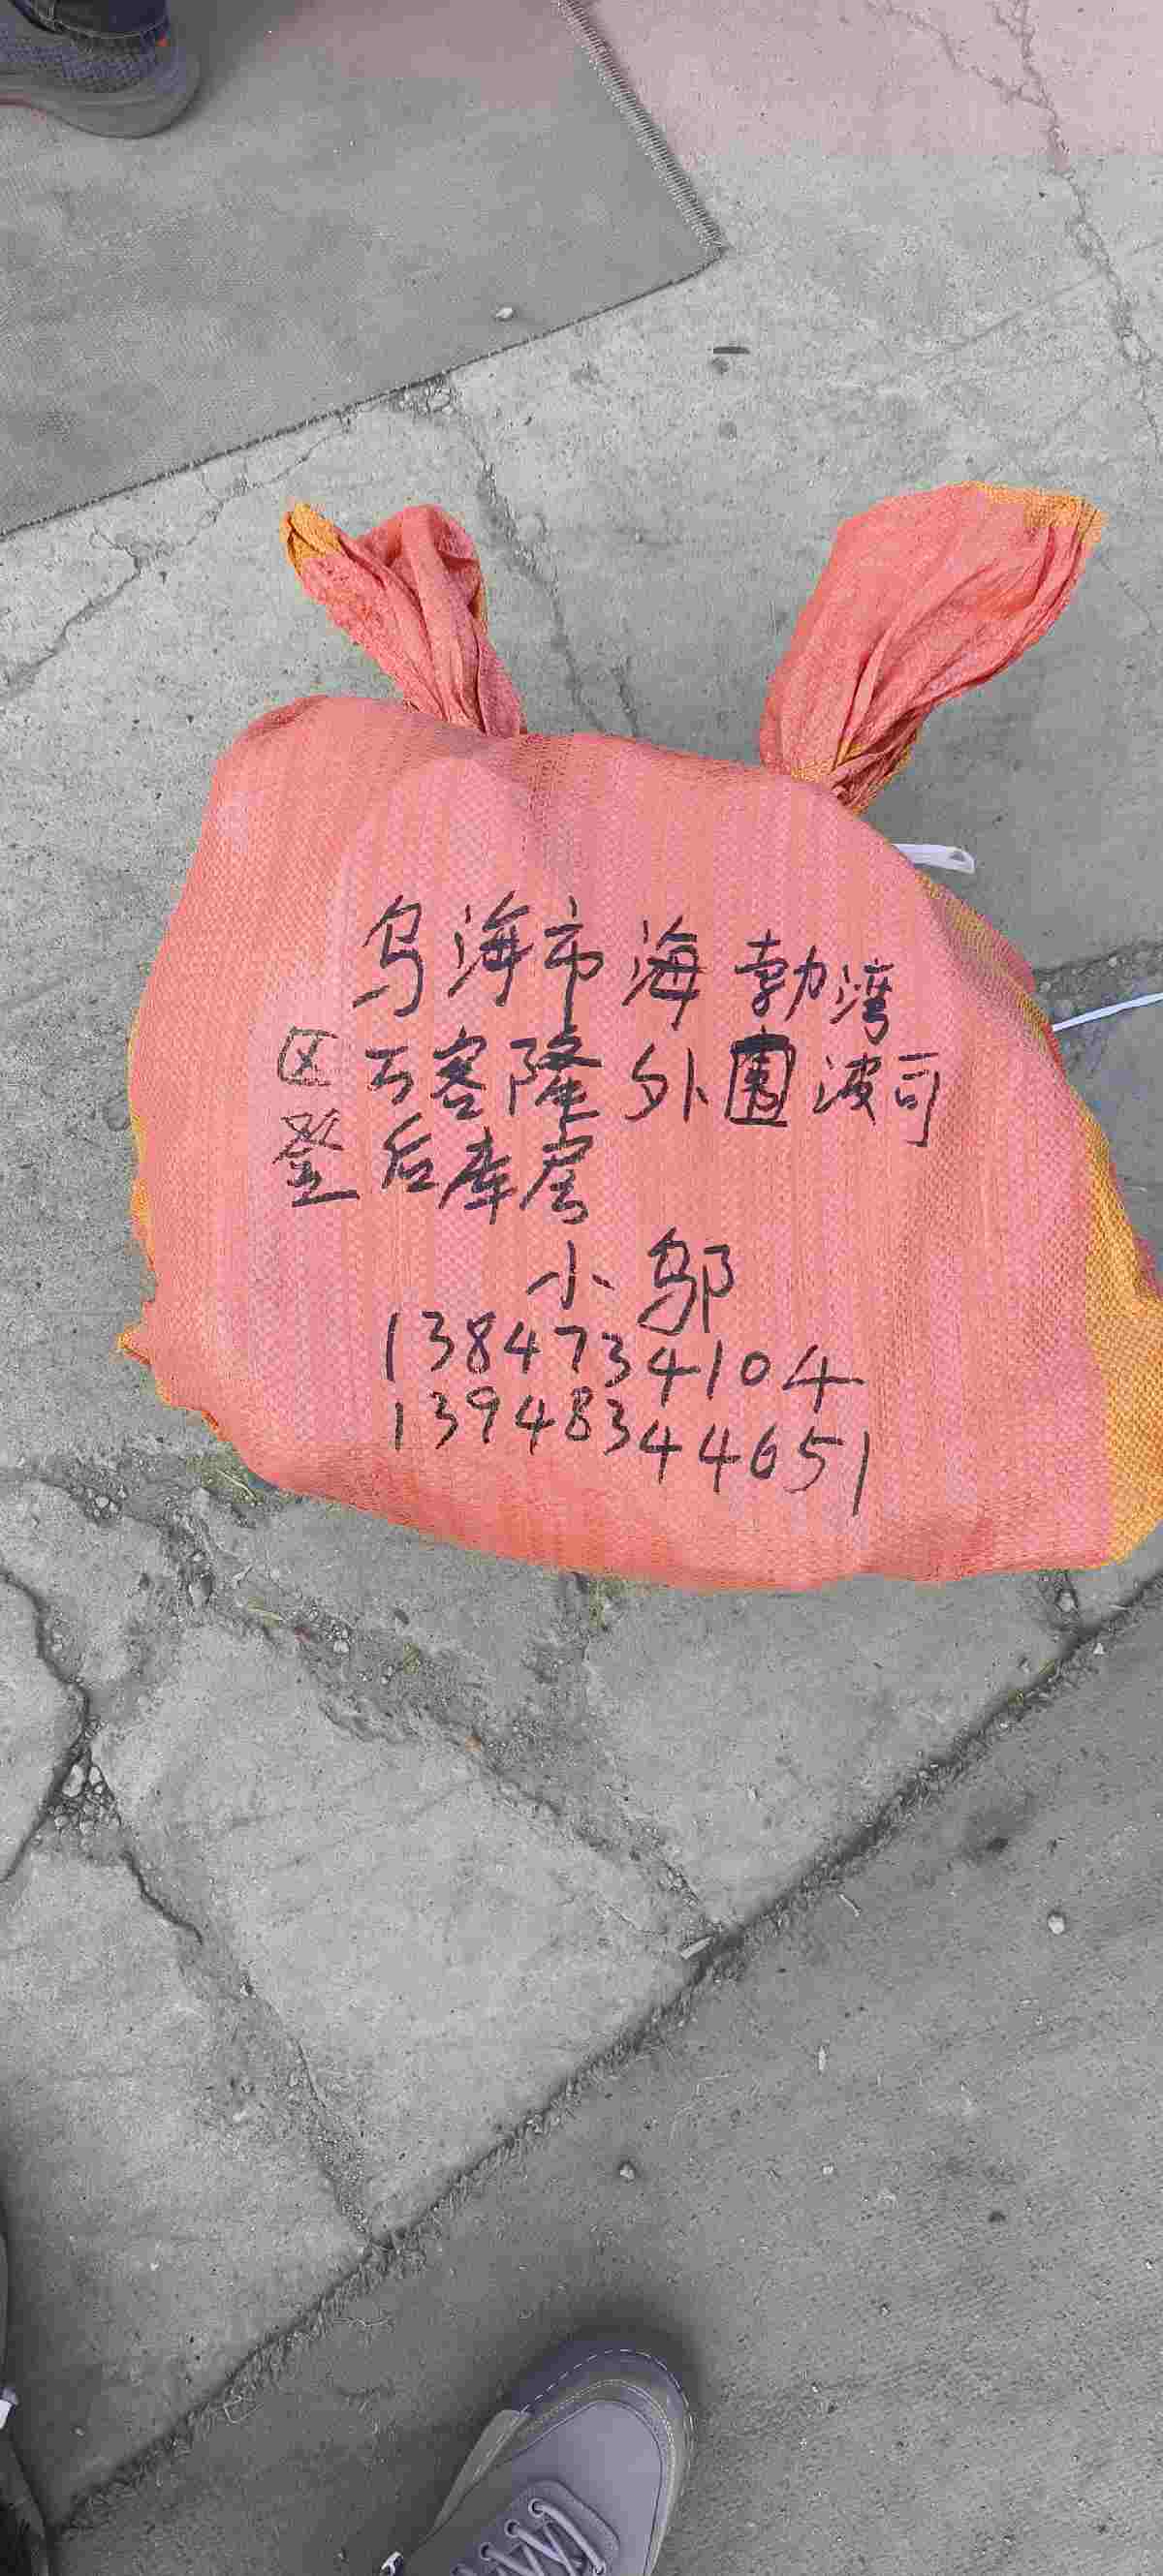 乌海市海勃湾
区万客隆外围波司
登后库房
小邬
13847734104
13948344651